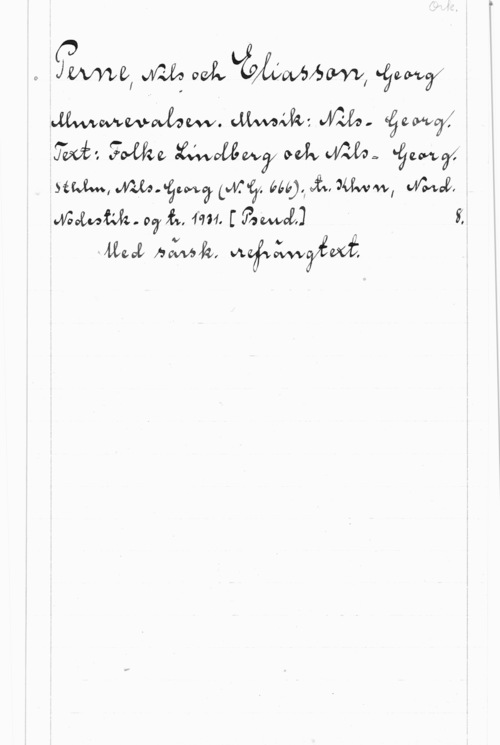 Ork.
Perne, Nils och Eliasson, Georg
Murarevalsen. Musik: Nils-Georg.
Text: Folke Lindberg och Nils-Georg.
Sthlm, Nils-Georg (N.G. 666); tr. Khvn, Nord.
Nodestik- og tr. 1931. [Pseud.] 8.
Med särsk. refrängtext.